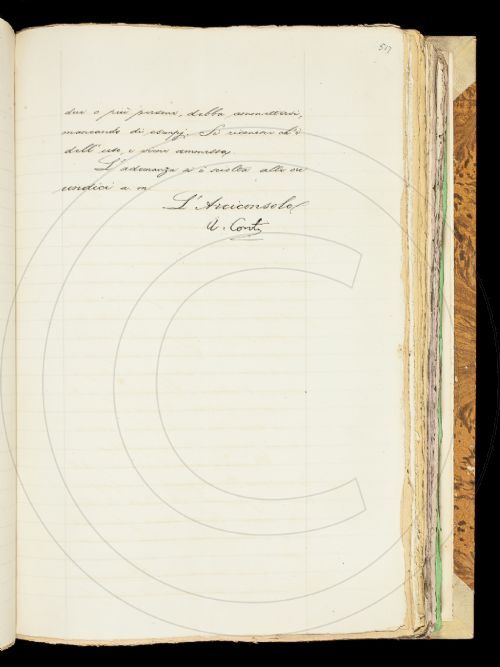 517
due o più persone, debba ammettersi,
mancando di esempj. Si riconosce ch'è
dell'uso, e viene ammessa.
L'adunanza si è sciolta alle ore
undici a m
L'Arciconsolo
A. Conti